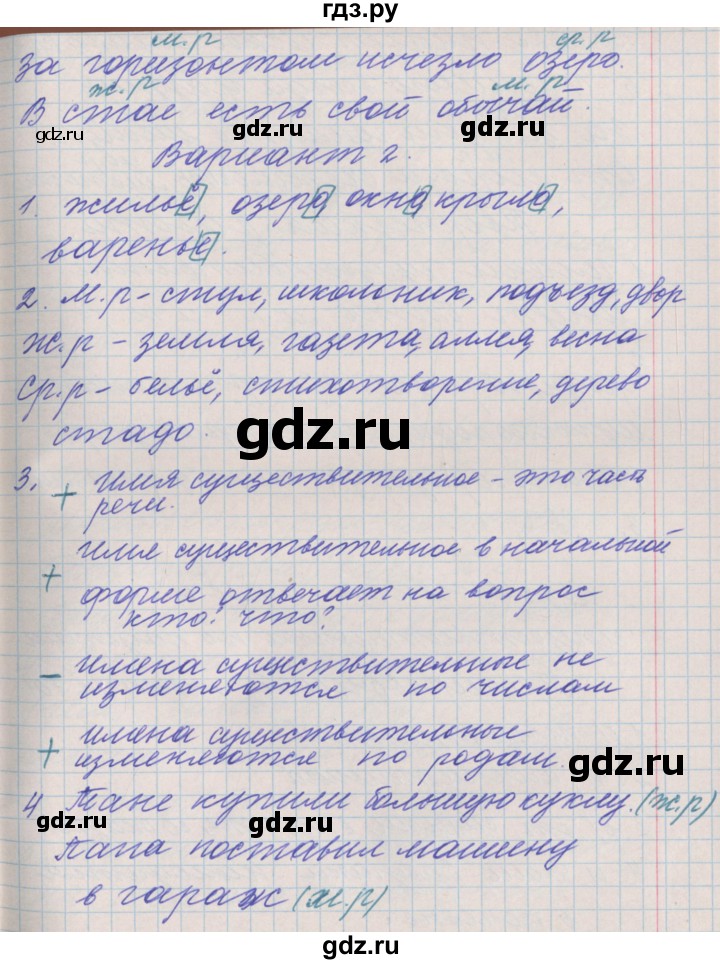 гдз.ру
м.р ср.р
За горизонтом исчезло озеро.
ж.р м.р
В стае есть свой обычай.
gdz.ru gdz.ru
Вариант 2.
1. жильё, озеро, окно, крыло,
варенье.
2. М.р - стул, школьник, подъезд, двор
Ж.р - земля, газета, аллея, весна
Ср.р - бельё, стихотворение, дерево
стадо.
gdz.ru
3. + Имя существительное - это часть
речи.
+ Имя существительное в начальной
форме отвечает на вопрос
кто? что?
- имена существительные не
изменяются по числам
+ имена существительные
изменяются по родам.
gdz.ru
4 Тане купили большую куклу. (ж.р)
gdz.ru gdz.ru
Папа поставил машину
в гараж (м.р)
gdz.ru